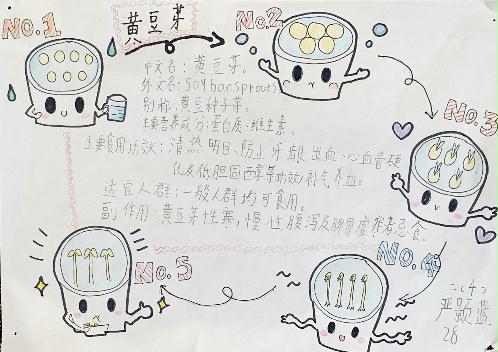 No.1
黄豆芽
No.2
中文名：黄豆芽。
外文名：Soybar sprouts
别称：黄豆种子芽。
主要营养成分：蛋白质、维生素。
主要食用功效：清热明目、防止牙龈出血、心血管硬
化及低胆固醇等功效、补气养血。
适宜人群：一般人群均可食用。
副作用：黄豆芽性寒，慢性腹泻及脾胃虚寒者忌食。
No.3
No.4
No.5
二（4）
严颢蓝
28